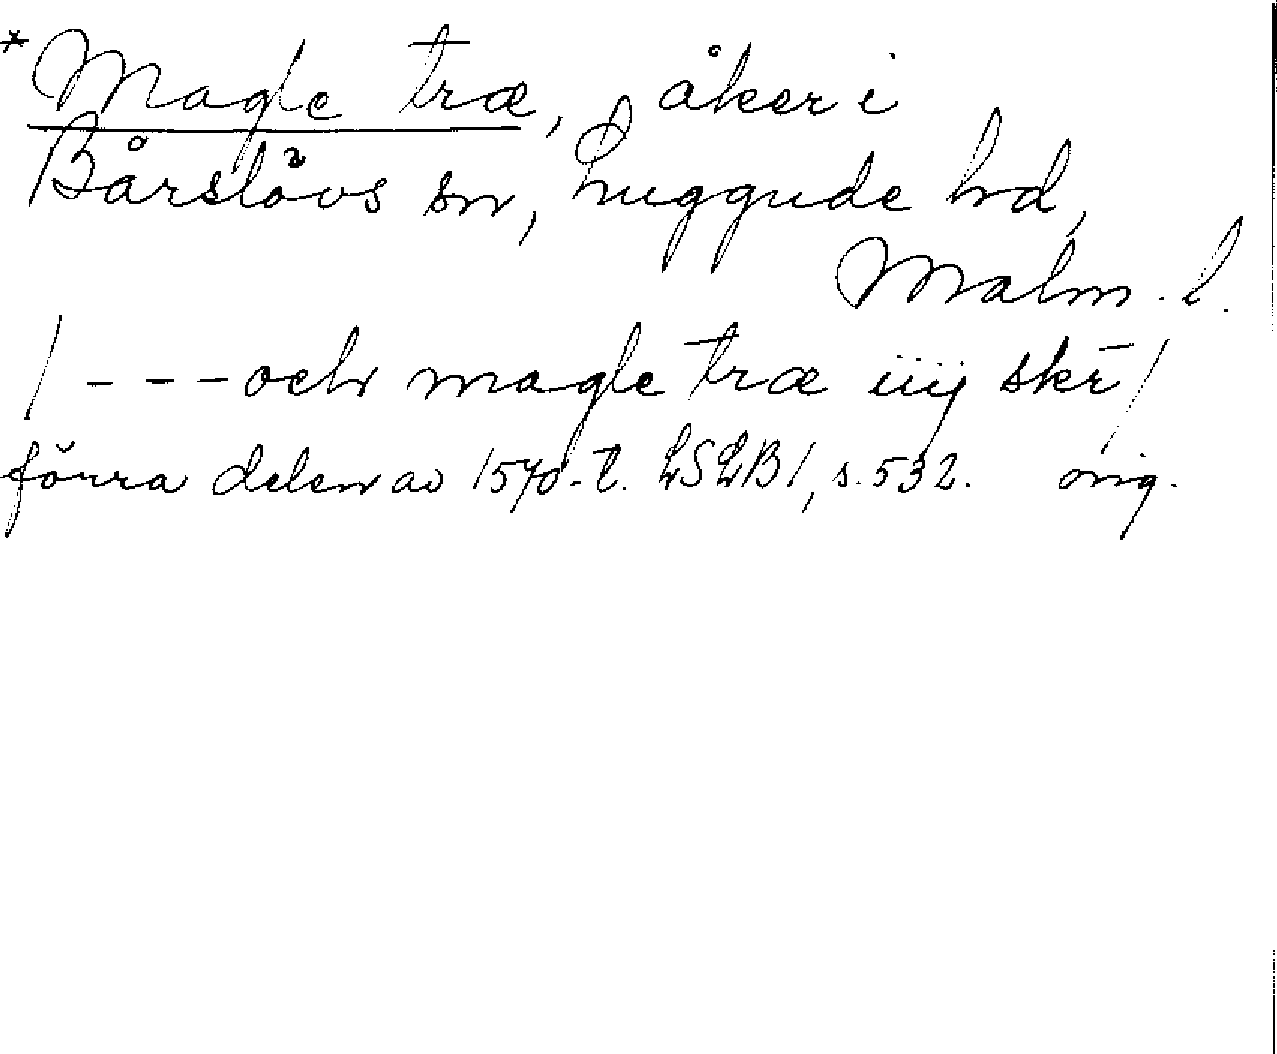 *Magle træ, åker i
Bårslövs sn, Luggude hd,
Malm. l.
/ - - - och magle træ iiij skr̄ /
förra delen av 1570-t. LSLB 1, s. 532. orig.